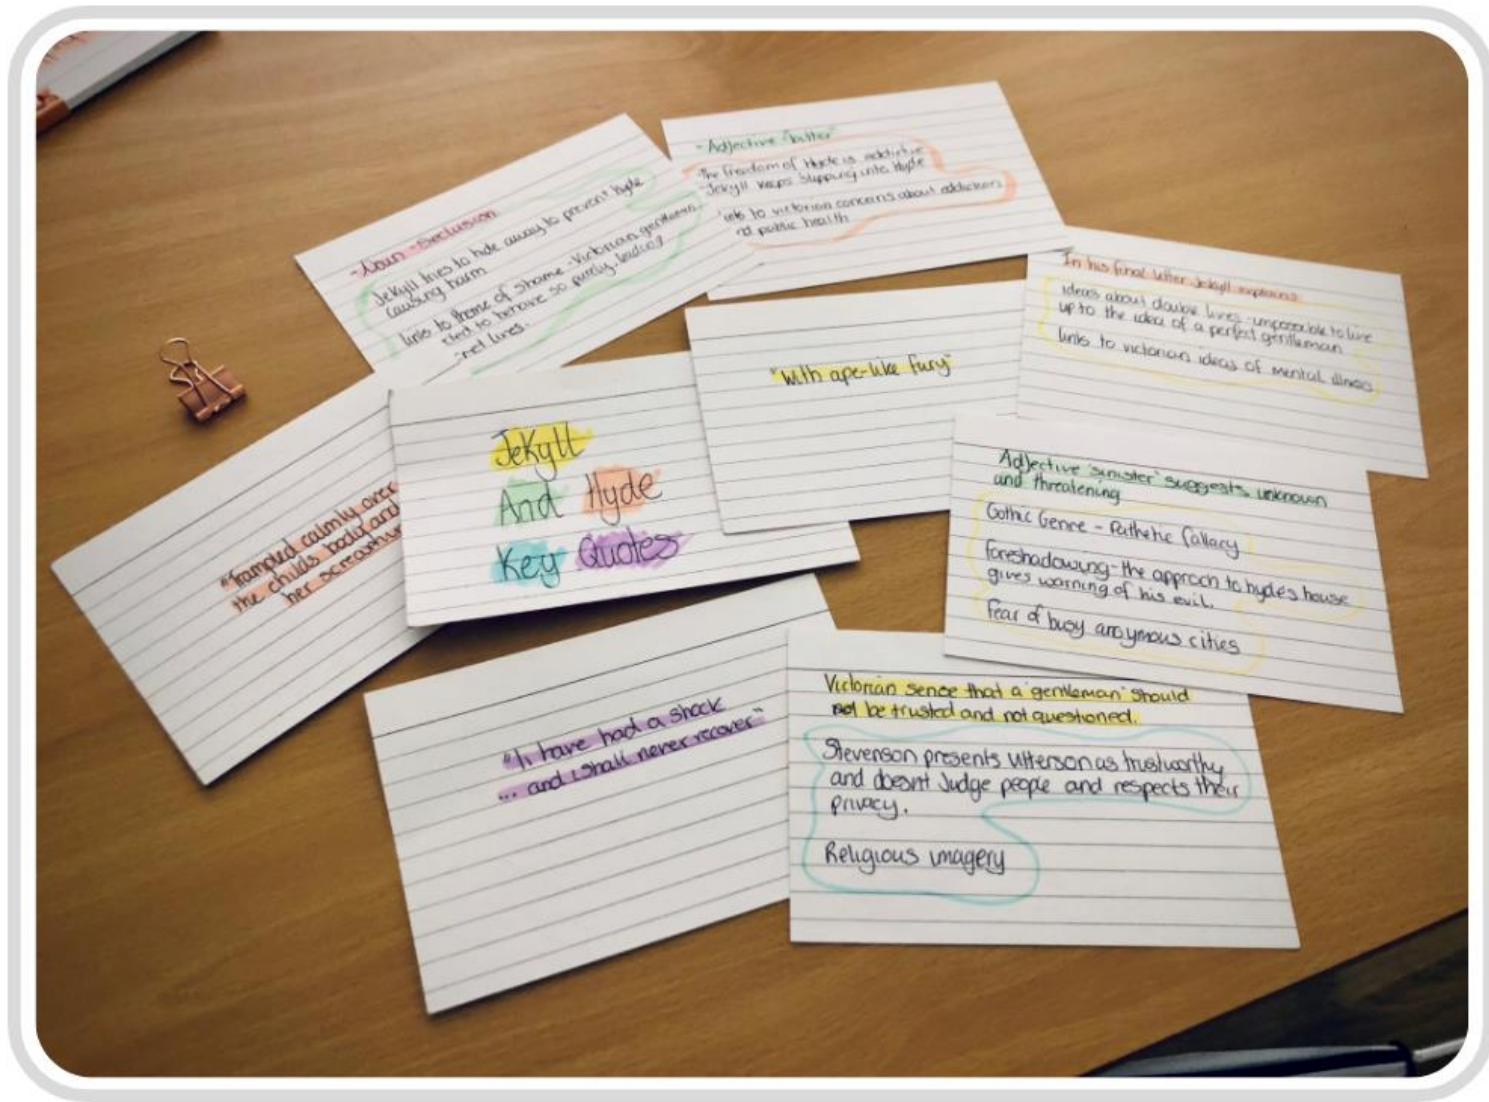 -Noun - seclusion
Jekyll tries to hide away to prevent hyde
causing harm
links to theme of shame - Victorian gentlemen
to behave so purely, leading
lives.
- Adjective "bitter"
The freedom of Hyde is addictive
-Jekyll keeps slipping into Hyde
to victorian concerns about addiction
public health
In his final letter Jekyll explains
ideas about double lives - impossible to live
up to the idea of a perfect gentleman
links to victorian ideas of mental illness
"with ape-like fury"
Jekyll
And Hyde
Key Quotes
"Trampled calmly over
the childs body and
her
Adjective 'sinister' suggests unknown
and threatening
Gothic Genre - Pathetic fallacy
foreshadowing - the approch to hydes house
gives warning of his evil.
Fear of busy anoymous cities
"I have had a shock
... and i shall never recover"
Victorian sense that a 'gentleman' should
be trusted and not questioned.
Stevenson presents Utterson as trustworthy
and doesnt Judge people and respects their
privacy.
Religious imagery